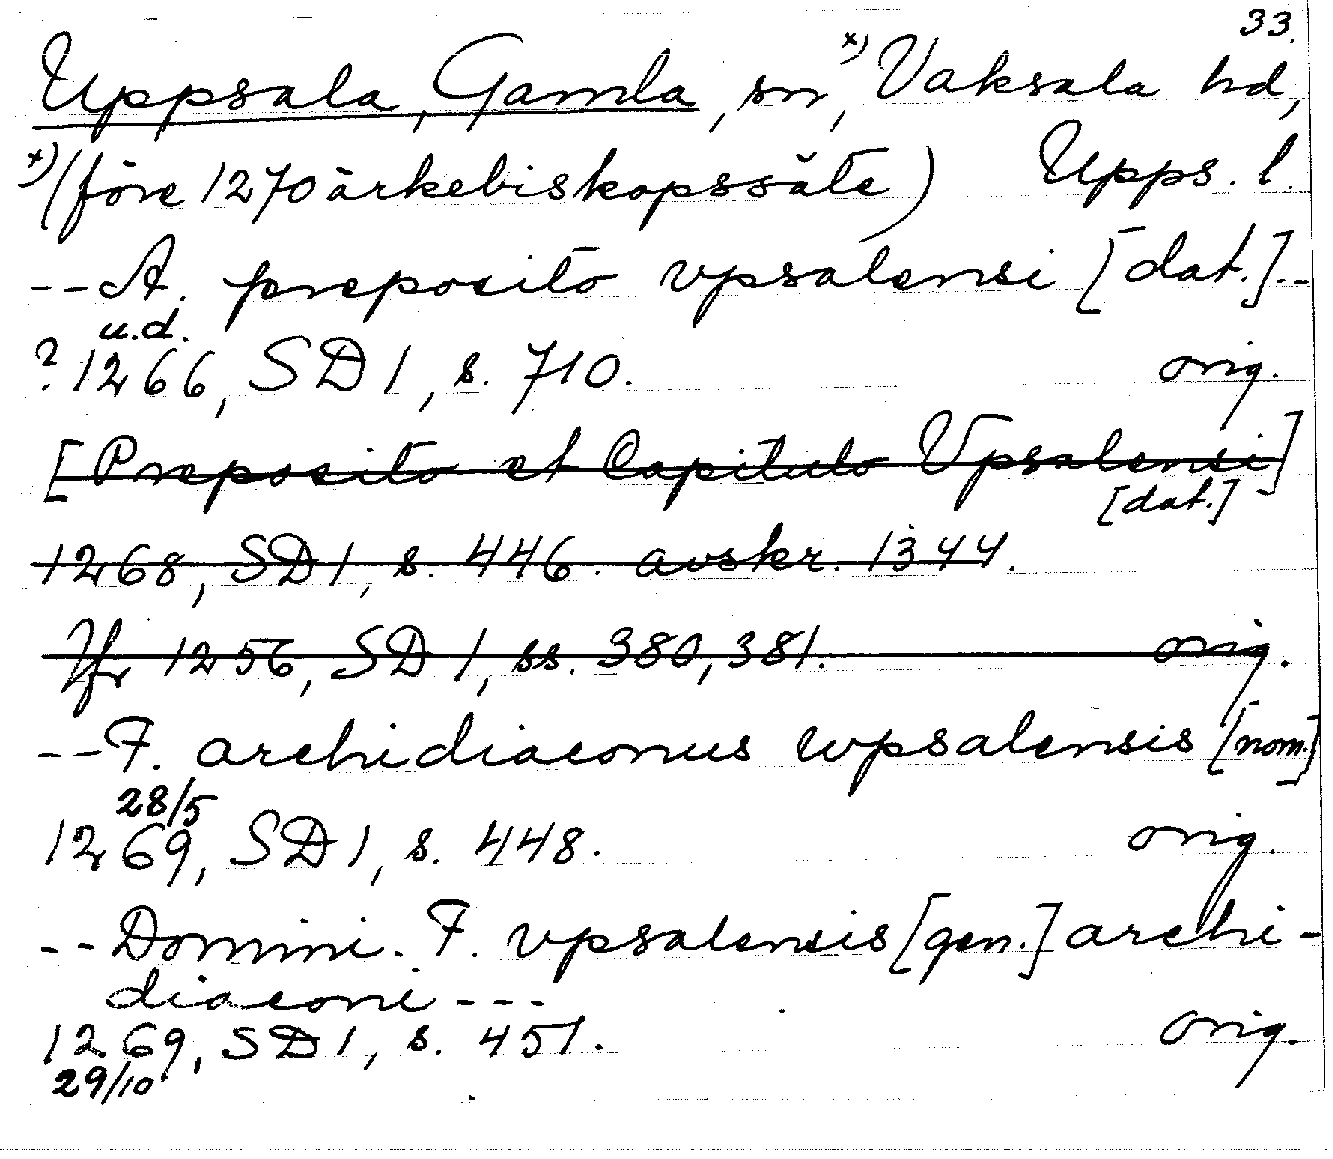 33.
Uppsala, Gamla, sn, x) Vaksala hd,
x) (före 1270 ärkebiskopssäte) Upps. l.
-- A. preposito vpsalensi [dat.]--
u.d.
? 1266, SD 1, s. 710. orig.
[Preposito et Capitulo Vpsalensi]
[dat.]
1268, SD 1, s. 446. avskr. 1344.
Jfr 1256, SD 1, ss. 380, 381. orig.
-- F. archidiaconus wpsalensis [nom.]
28/5
1269, SD 1, s. 448. orig.
-- Domini. F. vpsalensis [gen.] archi-
diaconi ---
1269, SD 1, s. 451. orig.
29/10